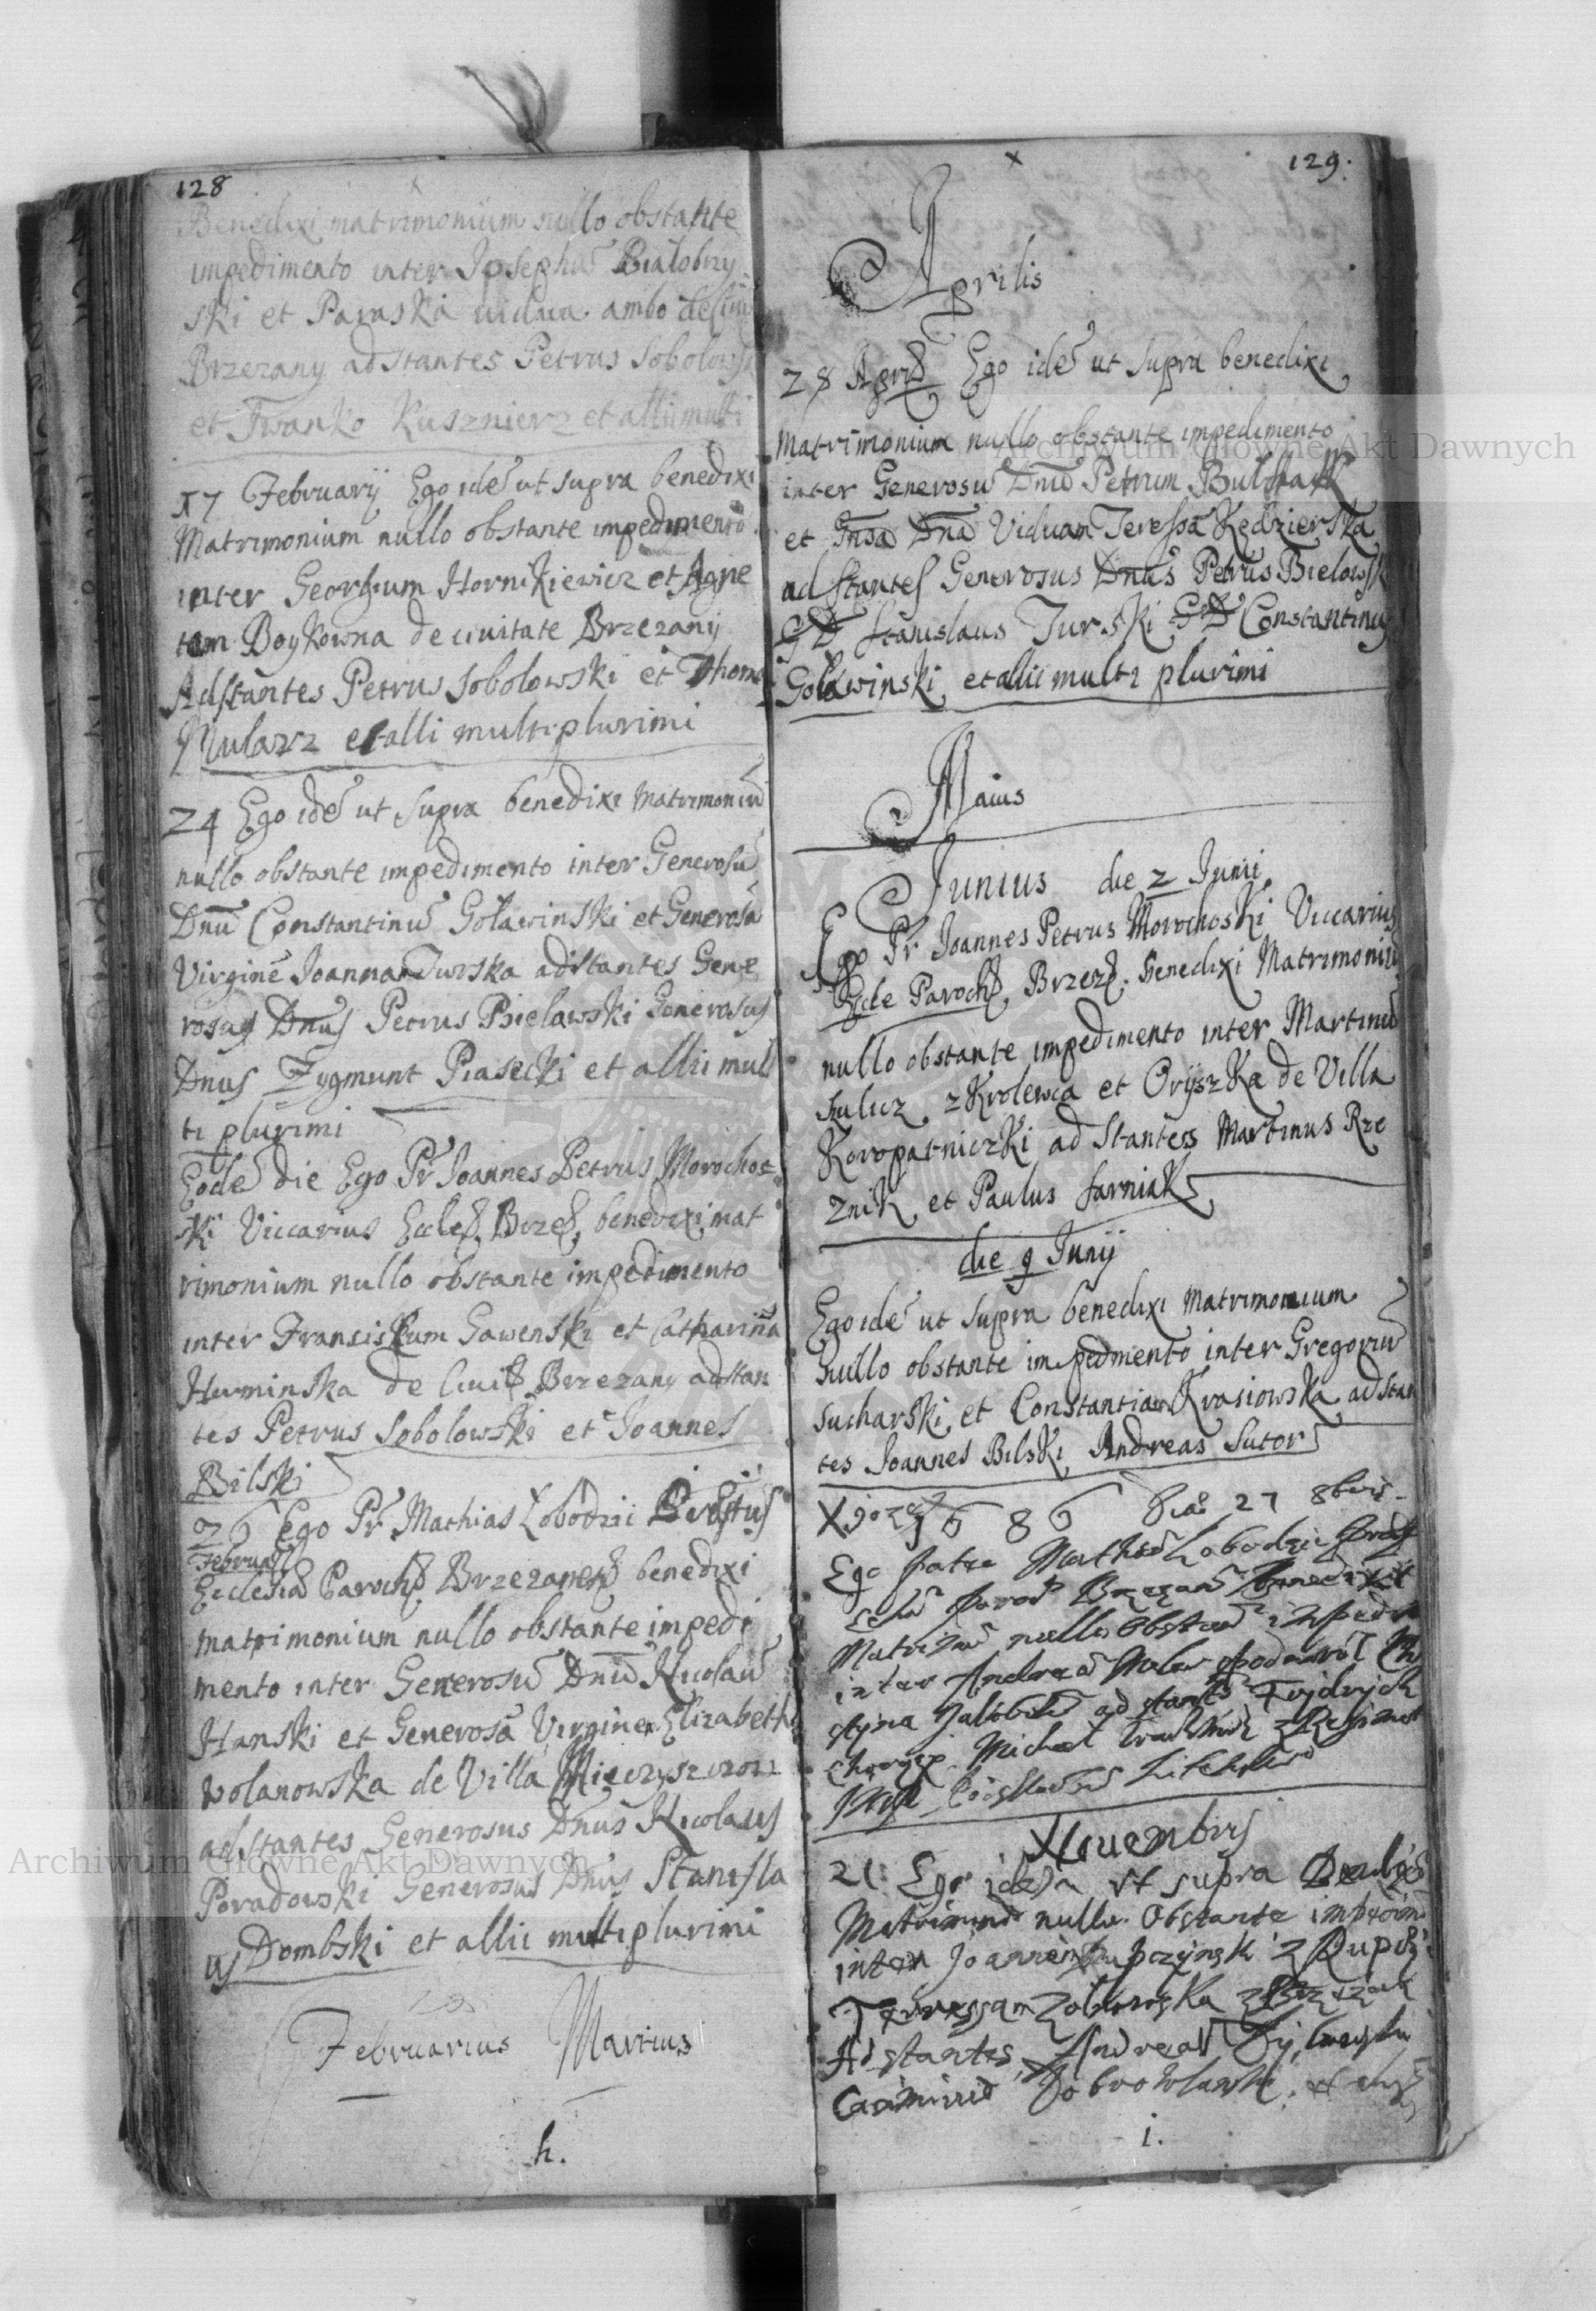 128
Benedixi matrimonium nullo obstante
impedimento inter Josephũ Białobrzy
ski et Paraska vidua ambo de Ciui
Brzezany adstantes Petrus Sobolowski
et Iwanko Kusznierz et allii multi
17 Februarij Ego idẽ ut supra benedixi
Matrimonium nullo obstante impedimento
inter Georgium Hornikiewicz et Agne
tam Boykowna de ciuitate Brzezany
Adstantes Petrus Sobolowski et Thom
Mularz et alli multi plurimi
24 Ego idẽ ut supra benedixi Matrimoniũ
nullo obstante impedimento inter Generosũ
Dnũ Constantinũ Goławinski et Generosã
Virginẽ Joannam Turska adstantes Gene
rosus Dnus Petrus Bielawski Generosus
Dnus Zygmunt Piasecki et allii mul
ti plurimi
Eodẽ die Ego Pr Joannes Petrus Morochos
ki Viccarius Eccles Brzes, benedixi mat
rimonium nullo obstante impedimento
inter Fransiskum Gawenski et Catharinã
Huminska de Ciuit Brzezany adstan
tes Petrus Sobolowski et Joannes
Bilski
26 Ego Pr Mathias Łobodzii
Februar
Ecclesiã Paroch Brzezanens benedixi
matrimonium nullo obstante impedi
mento inter Generosũ Dnũ Nicolaũ
Hanski et Generosã Virginem Elizabeth
Wolanowska de Villa Mieczyszczow
adstantes Generosus Dnus Nicolaus
Poradowski Generosus Dnus Stanisla
us Dombski et allii multi plurimi
Februarius Martius
h.
129.
x
Aprilis
28 April Ego idẽ ut supra benedixi
Matrimonium nullo obstante impedimento
inter Generosũ Dnũ Petrum
et Gnsã Dnã Viduam Teressã Kędzierska
adstantes Generosus Dnus Petrus Bielowsk
GD Stanislaus Turski GD Constantinus
Goławinski et allii multi plurimi
Maius
Junius die 2 Junii
Ego Pr Joannes Petrus Morochoski Viccarius
Eccle Paroch, Brzez. benedixi Matrimoniũ
nullo obstante impedimento inter Martinũ
Szulicz z Krolewca et Oryszka de Villa
Koropatniczki adstantes Martinus Rze
znik et Paulus Sarniak
die 9 Junij
Ego idẽ ut supra benedixi Matrimonium
Nullo obstante impedmento inter Gregoriũ
Sucharski et Constantiam Krasiowska adstan
tes Joannes Bilski Andreas Sutor
1686 27 8bris
Ego Mathias Łobodzic
Brzezan benedixit
Matrimo nullo obstan impedi
inter Andreã
adstants Frydrych
Michael
Nouembris
21 Ego idem ut supra
Matrimon nullo Obstante impedim
inter Joannem z
Teressam z
Adstantes Andreas
Casimirus
i.
Archiwum Główne Akt Dawnych
Archiwum Główne Akt Dawnych